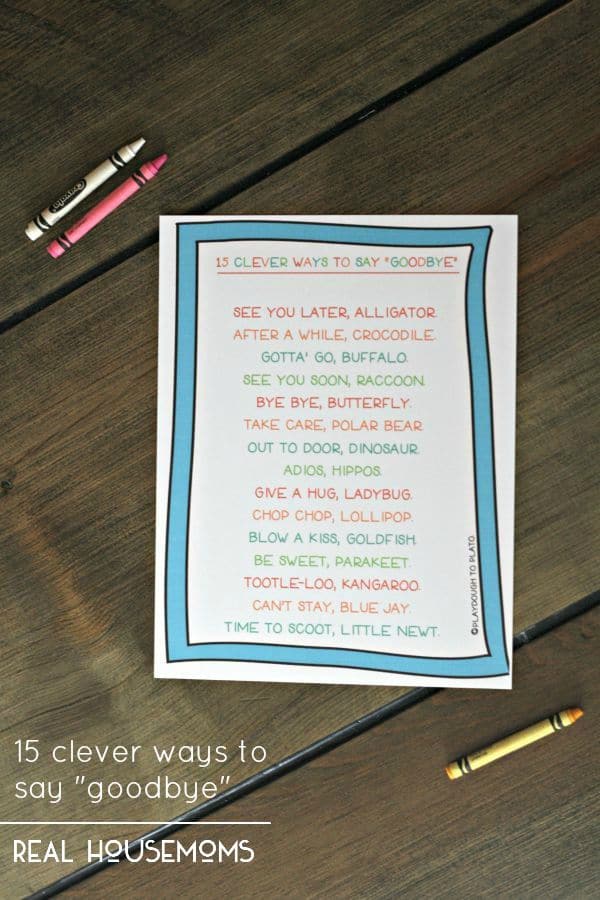 Crayola
15 CLEVER WAYS TO SAY "GOODBYE"
SEE YOU LATER, ALLIGATOR.
AFTER A WHILE, CROCODILE.
GOTTA' GO, BUFFALO.
SEE YOU SOON, RACCOON.
BYE BYE, BUTTERFLY.
TAKE CARE, POLAR BEAR.
OUT TO DOOR, DINOSAUR.
ADIOS, HIPPOS.
GIVE A HUG, LADYBUG.
CHOP CHOP, LOLLIPOP.
BLOW A KISS, GOLDFISH.
BE SWEET, PARAKEET.
TOOTLE-LOO, KANGAROO.
CAN'T STAY, BLUE JAY.
TIME TO SCOOT, LITTLE NEWT.
©PLAYDOUGH TO PLATO
15 clever ways to
say "goodbye"
REAL HOUSEMOMS